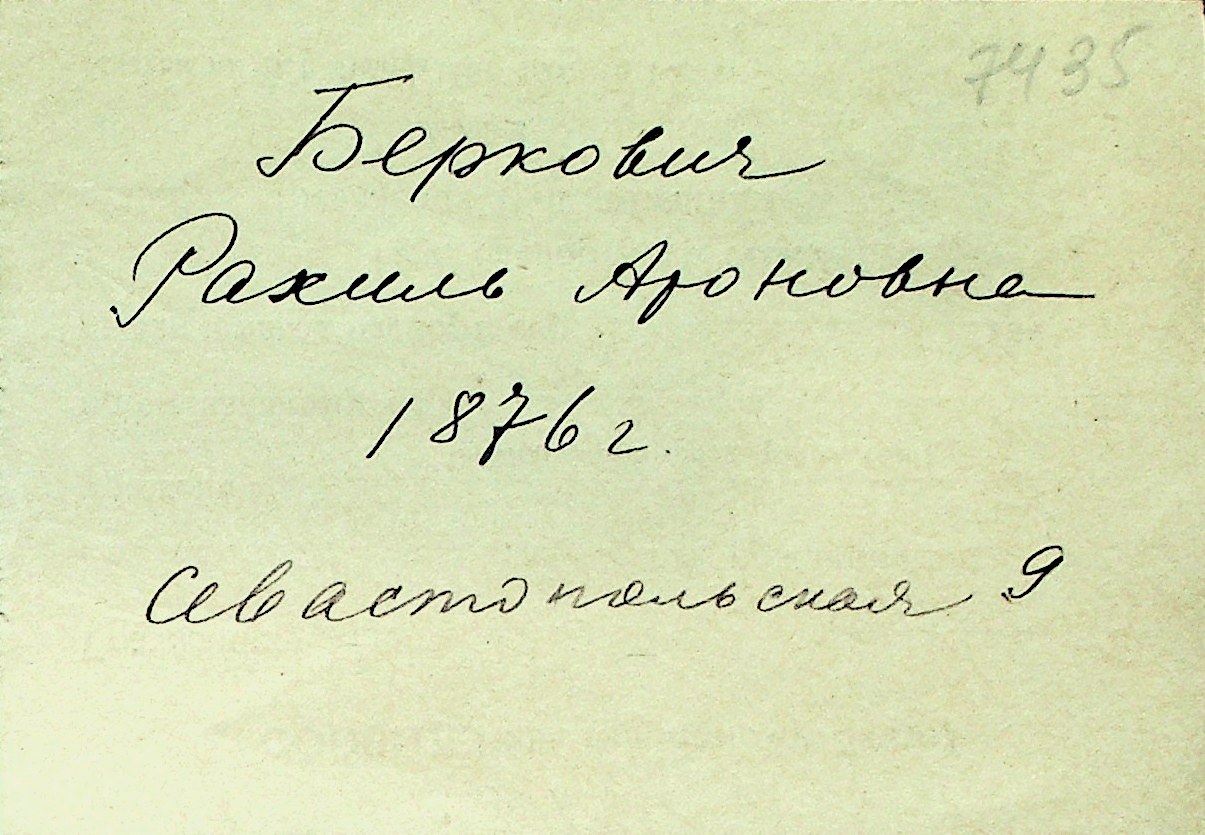 7435
Беркович
Рахиль Ароновна
1876 г.
Севастопольская 9